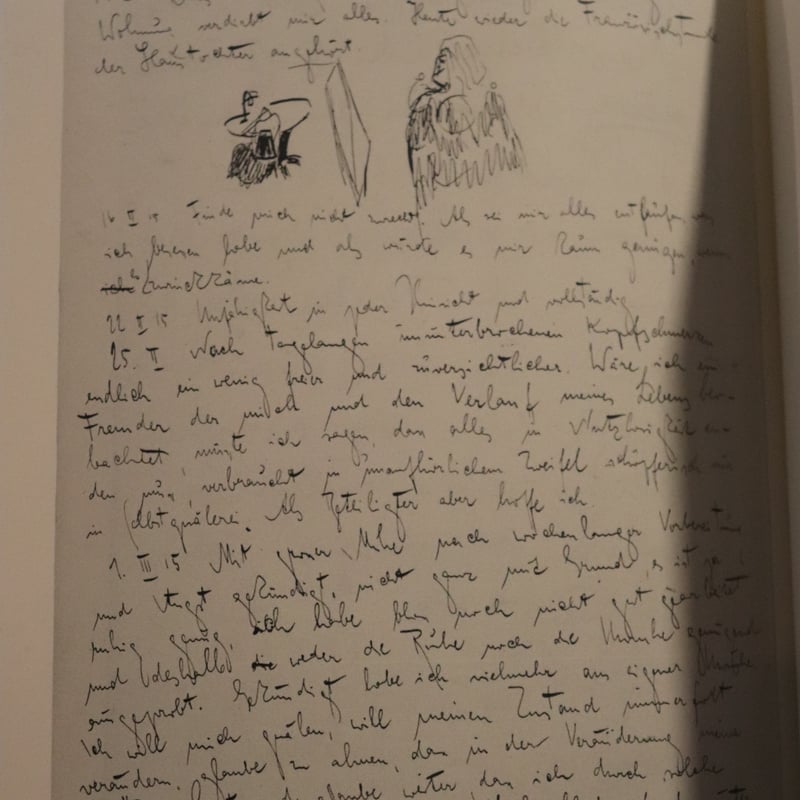 Wohnung verdirbt mir alles. Heute wieder die Französischstunde
der Haustochter angehört.
16 II 15 Finde mich nicht zurecht. Als sei mir alles entlaufen, was
ich besessen habe und als würde es mir kaum genügen, wenn
es zurückkäme.
22 II 15 Unfähigkeit in jeder Hinsicht und vollständig
25. II Nach tagelangen ununterbrochenen Kopfschmerzen
endlich ein wenig freier und zuversichtlicher. Wäre ich ein
Fremder der mich und den Verlauf meines Lebens beo-
bachtet, müsste ich sagen, dass alles in Nutzlosigkeit en-
den muss, verbraucht in unaufhörlichem Zweifel schöpferisch nur
in Selbstquälerei. Als Beteiligter aber hoffe ich.
1. III 15 Mit grosser Mühe nach wochenlanger Vorbereitung
und Angst gekündigt, nicht ganz mit Grund, es ist ja
ruhig genug, ich habe bloss noch nicht gut gearbeitet
und deshalb weder die Ruhe noch die Unruhe genügend
ausgeprobt. Gekündigt habe ich vielmehr aus eigener Unruhe
Ich will mich quälen, will meinen Zustand immerfort
verändern, glaube zu ahnen, dass in der Veränderung meine
glaube weiter dass ich durch solche